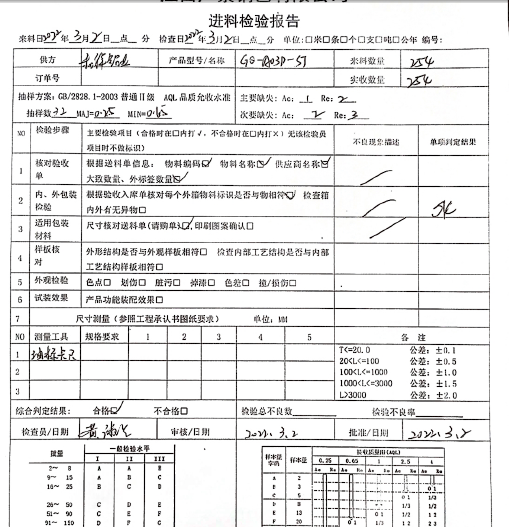 进料检验报告
来料日2022年3月2日__点__分 检查日2022年3月2日__点__分 单位:□米□条□个□支□吨□公斤 编号:
供方 产品型号/名称 来料数量 254
订单号 实收数量 254
抽样方案: GB/2828.1-2003 普通II级 AQL品质允收水准 主要缺失: Ac: 1 Re: 2
抽样数32 MAJ=0.25 MIN=0.65 次要缺失: Ac: 2 Re: 3
NO 检验步骤 主要检验项目(合格时在□内打√,不合格时在□内打×)无该检验员项目时不做标识) 不良现象描述 单项判定结果
1 核对验收单 根据送料单信息: 物料编码☑ 物料名称☑ 供应商名称☑
大致数量、外标签数量☑
2 内、外包装检验 根据验收入库单核对每个外箱物料标识是否与物相符☑ 检查箱
内外有无异物□
3 适用包装材料 尺寸核对送料单(请购单)☑,印刷图案确认□
4 样板核对 外形结构是否与外观样板相符□ 检查内部工艺结构是否与内部
工艺结构样板相符□
5 外观检验 色点□ 划伤□ 脏污□ 掉漆□ 色差□ 撞/损伤□
6 试装效果 产品功能装配效果□
7 尺寸测量(参照工程承认书图纸要求) 单位: MM
NO 测量工具 规格要求 1 2 3 4 5 备 注
1 游标卡尺 T<=20.0 公差: ±0.1
20<L<=100 公差: ±0.5
2 100<L<=1000 公差: ±1.0
1000<L<=3000 公差: ±1.5
3 L>3000 公差: ±2.0
综合判定结果: 合格☑ 不合格□ 检验总不良数 检验不良率
检查员/日期 审核/日期 2022.3.2 批准/日期 2022.3.2
批量 一般检验水平
I II III
2～ 8 A A B
9～ 15 A B C
16～ 25 B C D
26～ 50 C D E
51～ 90 C E F
91～ 150 D F G
样本量字码 样本量 接收质量限(AQL)
0.25 0.65 1 2.5 4
Ac Re Ac Re Ac Re Ac Re Ac Re
A 2
B 3
C 5
D 8
E 13
F 20